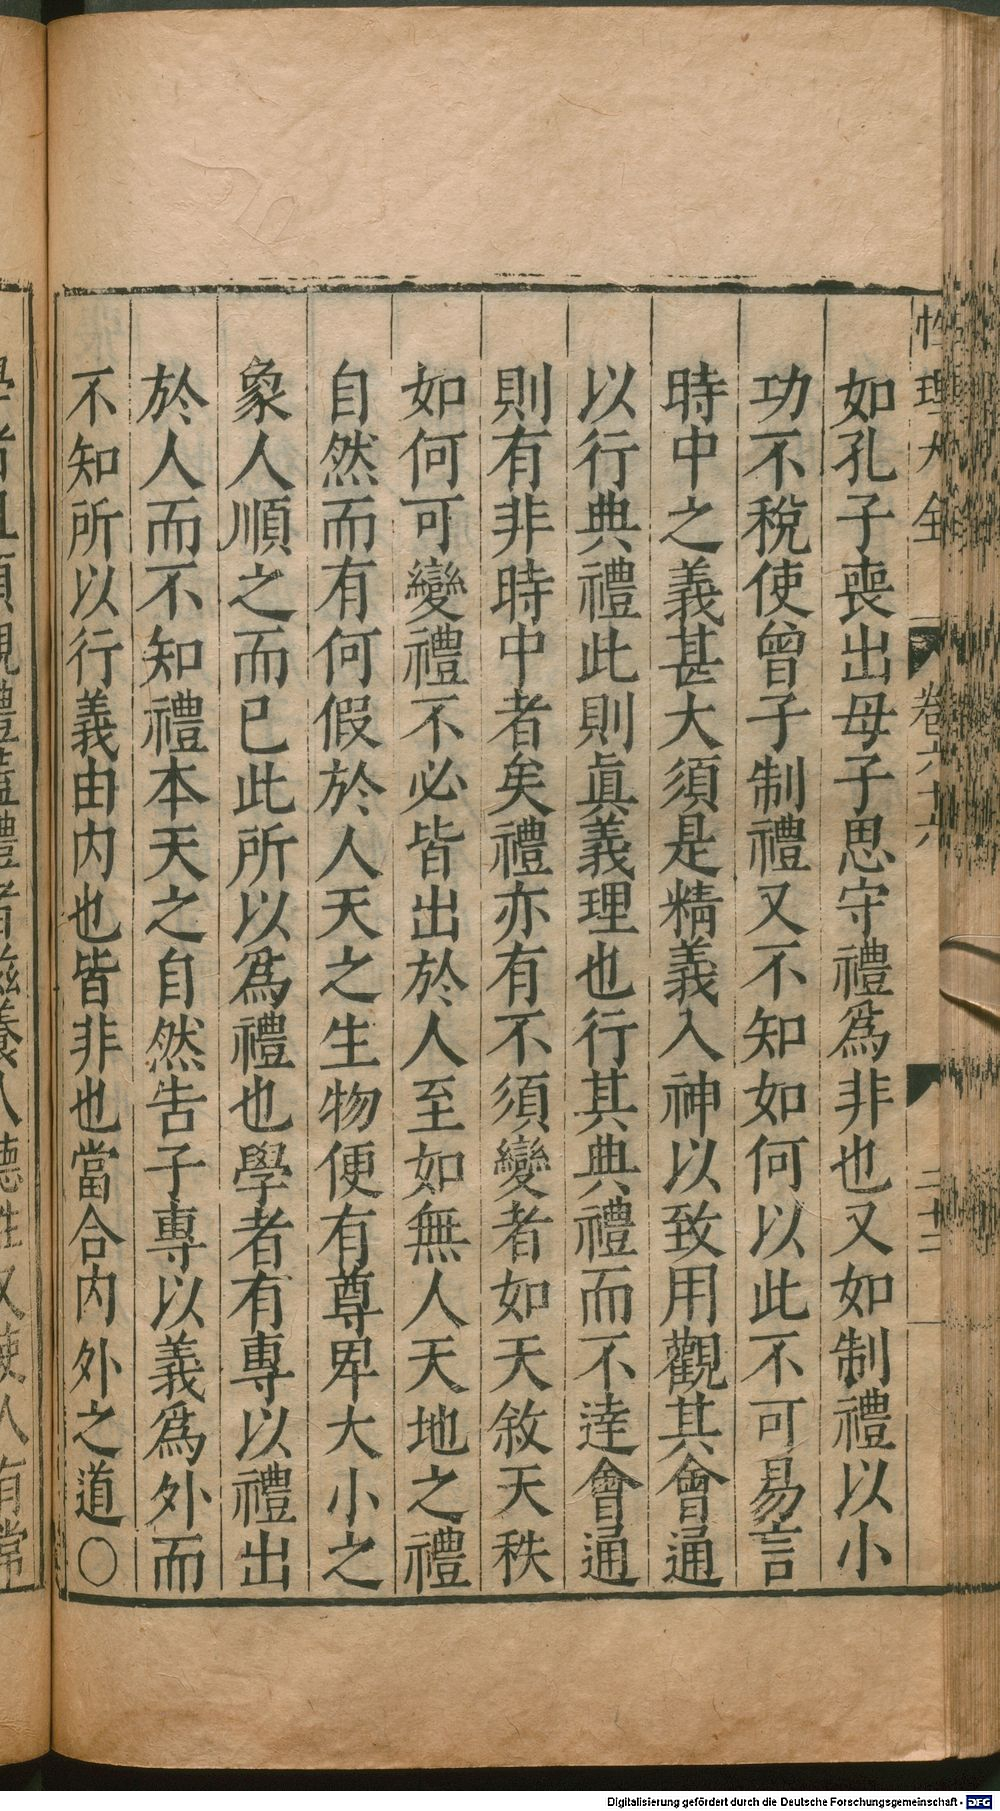 性理大全 卷六十六 二十二
如孔子喪出母子思守禮為非也又如制禮以小
功不稅使曾子制禮又不知如何以此不可易言
時中之義甚大須是精義入神以致用觀其會通
以行典禮此則眞義理也行其典禮而不達會通
則有非時中者矣禮亦有不須變者如天敘天秩
如何可變禮不必皆出於人至如無人天地之禮
自然而有何假於人天之生物便有尊卑大小之
象人順之而已此所以爲禮也學者有專以禮出
於人而不知禮本天之自然告子專以義爲外而
不知所以行義由内也皆非也當合内外之道〇
Digitalisierung gefördert durch die Deutsche Forschungsgemeinschaft - DFG